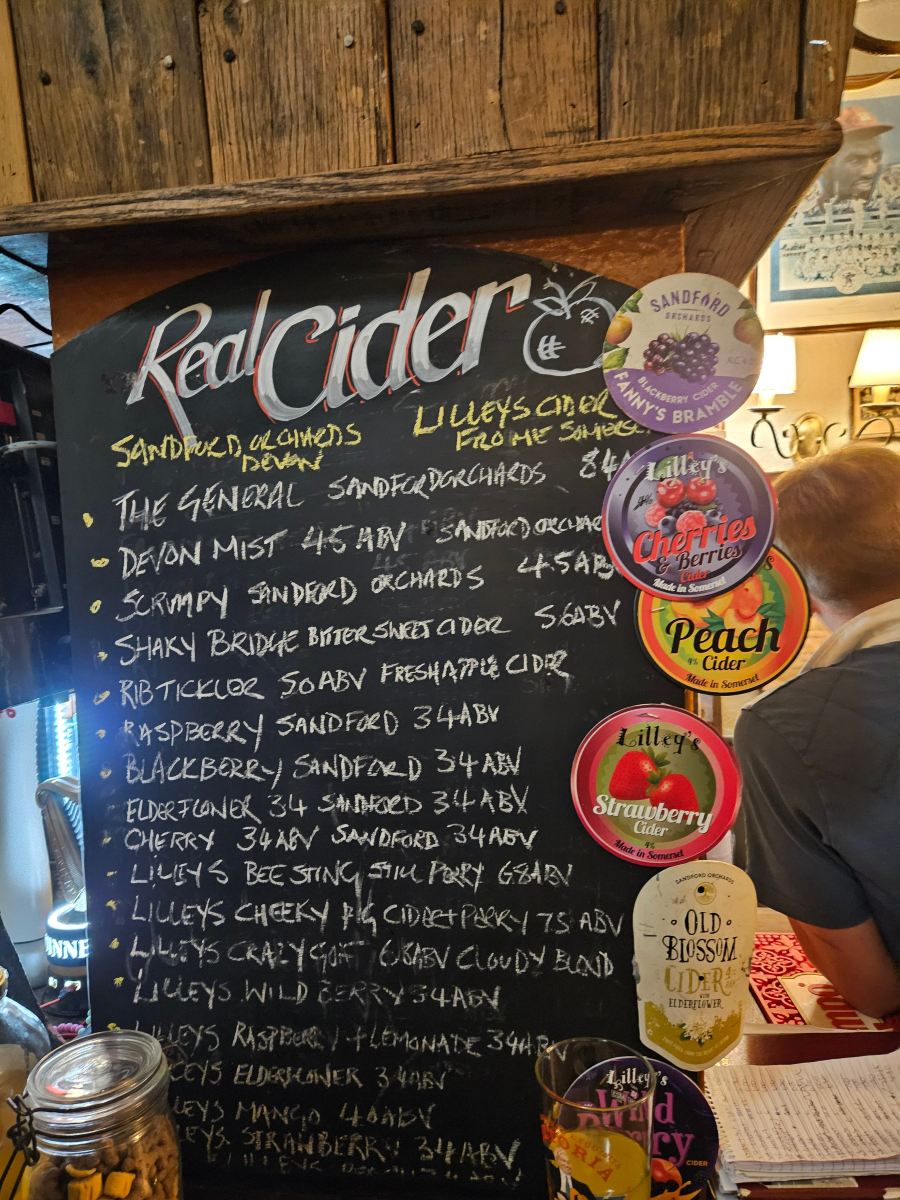 Real Cider
SANDFORD ORCHARDS
DEVON
LILLEYS CIDER
FROME SOMERSE
THE GENERAL SANDFORDORCHARDS 84A
DEVON MIST 45 ABV SANDFORDORCHAR
SCRUMPY SANDFORD ORCHARDS 4.5AB
SHAKY BRIDGE BITTERSWEET CIDER 5.6ABV
RIBTICKLER 5.0ABV FRESHAPPLE CIDER
RASPBERRY SANDFORD 34ABV
BLACKBERRY SANDFORD 34ABV
ELDERFLOWER 34 SANDFORD 34ABV
CHERRY 34ABV SANDFORD 34ABV
LILLEYS BEESTING STILL PERRY 68ABV
LILLEYS CHEEKY PIG CIDER+PERRY 75 ABV
LILLEYS CRAZY GOAT 6.8ABV CLOUDY BLOND
LILLEYS WILD BERRY 34ABV
LILLEYS RASPBERRY +LEMONADE 34ABV
LEYS ELDERFLOWER 34ABV
LEYS MANGO 4.0ABV
LEYS STRAWBERRY 34ABV
SANDFORD
ORCHARDS
BLACKBERRY CIDER
FANNY'S BRAMBLE
Lilley's
Cherries
& Berries
Cider
Made in Somerset
Peach
4% Cider
Made in Somerset
Lilley's
Strawberry
Cider
4%
Made in Somerset
SANDFORD ORCHARDS
OLD
BLOSSOM
CIDER
WITH
ELDERFLOWER
Lilley's
Wild
CIDER
RIA
NNE